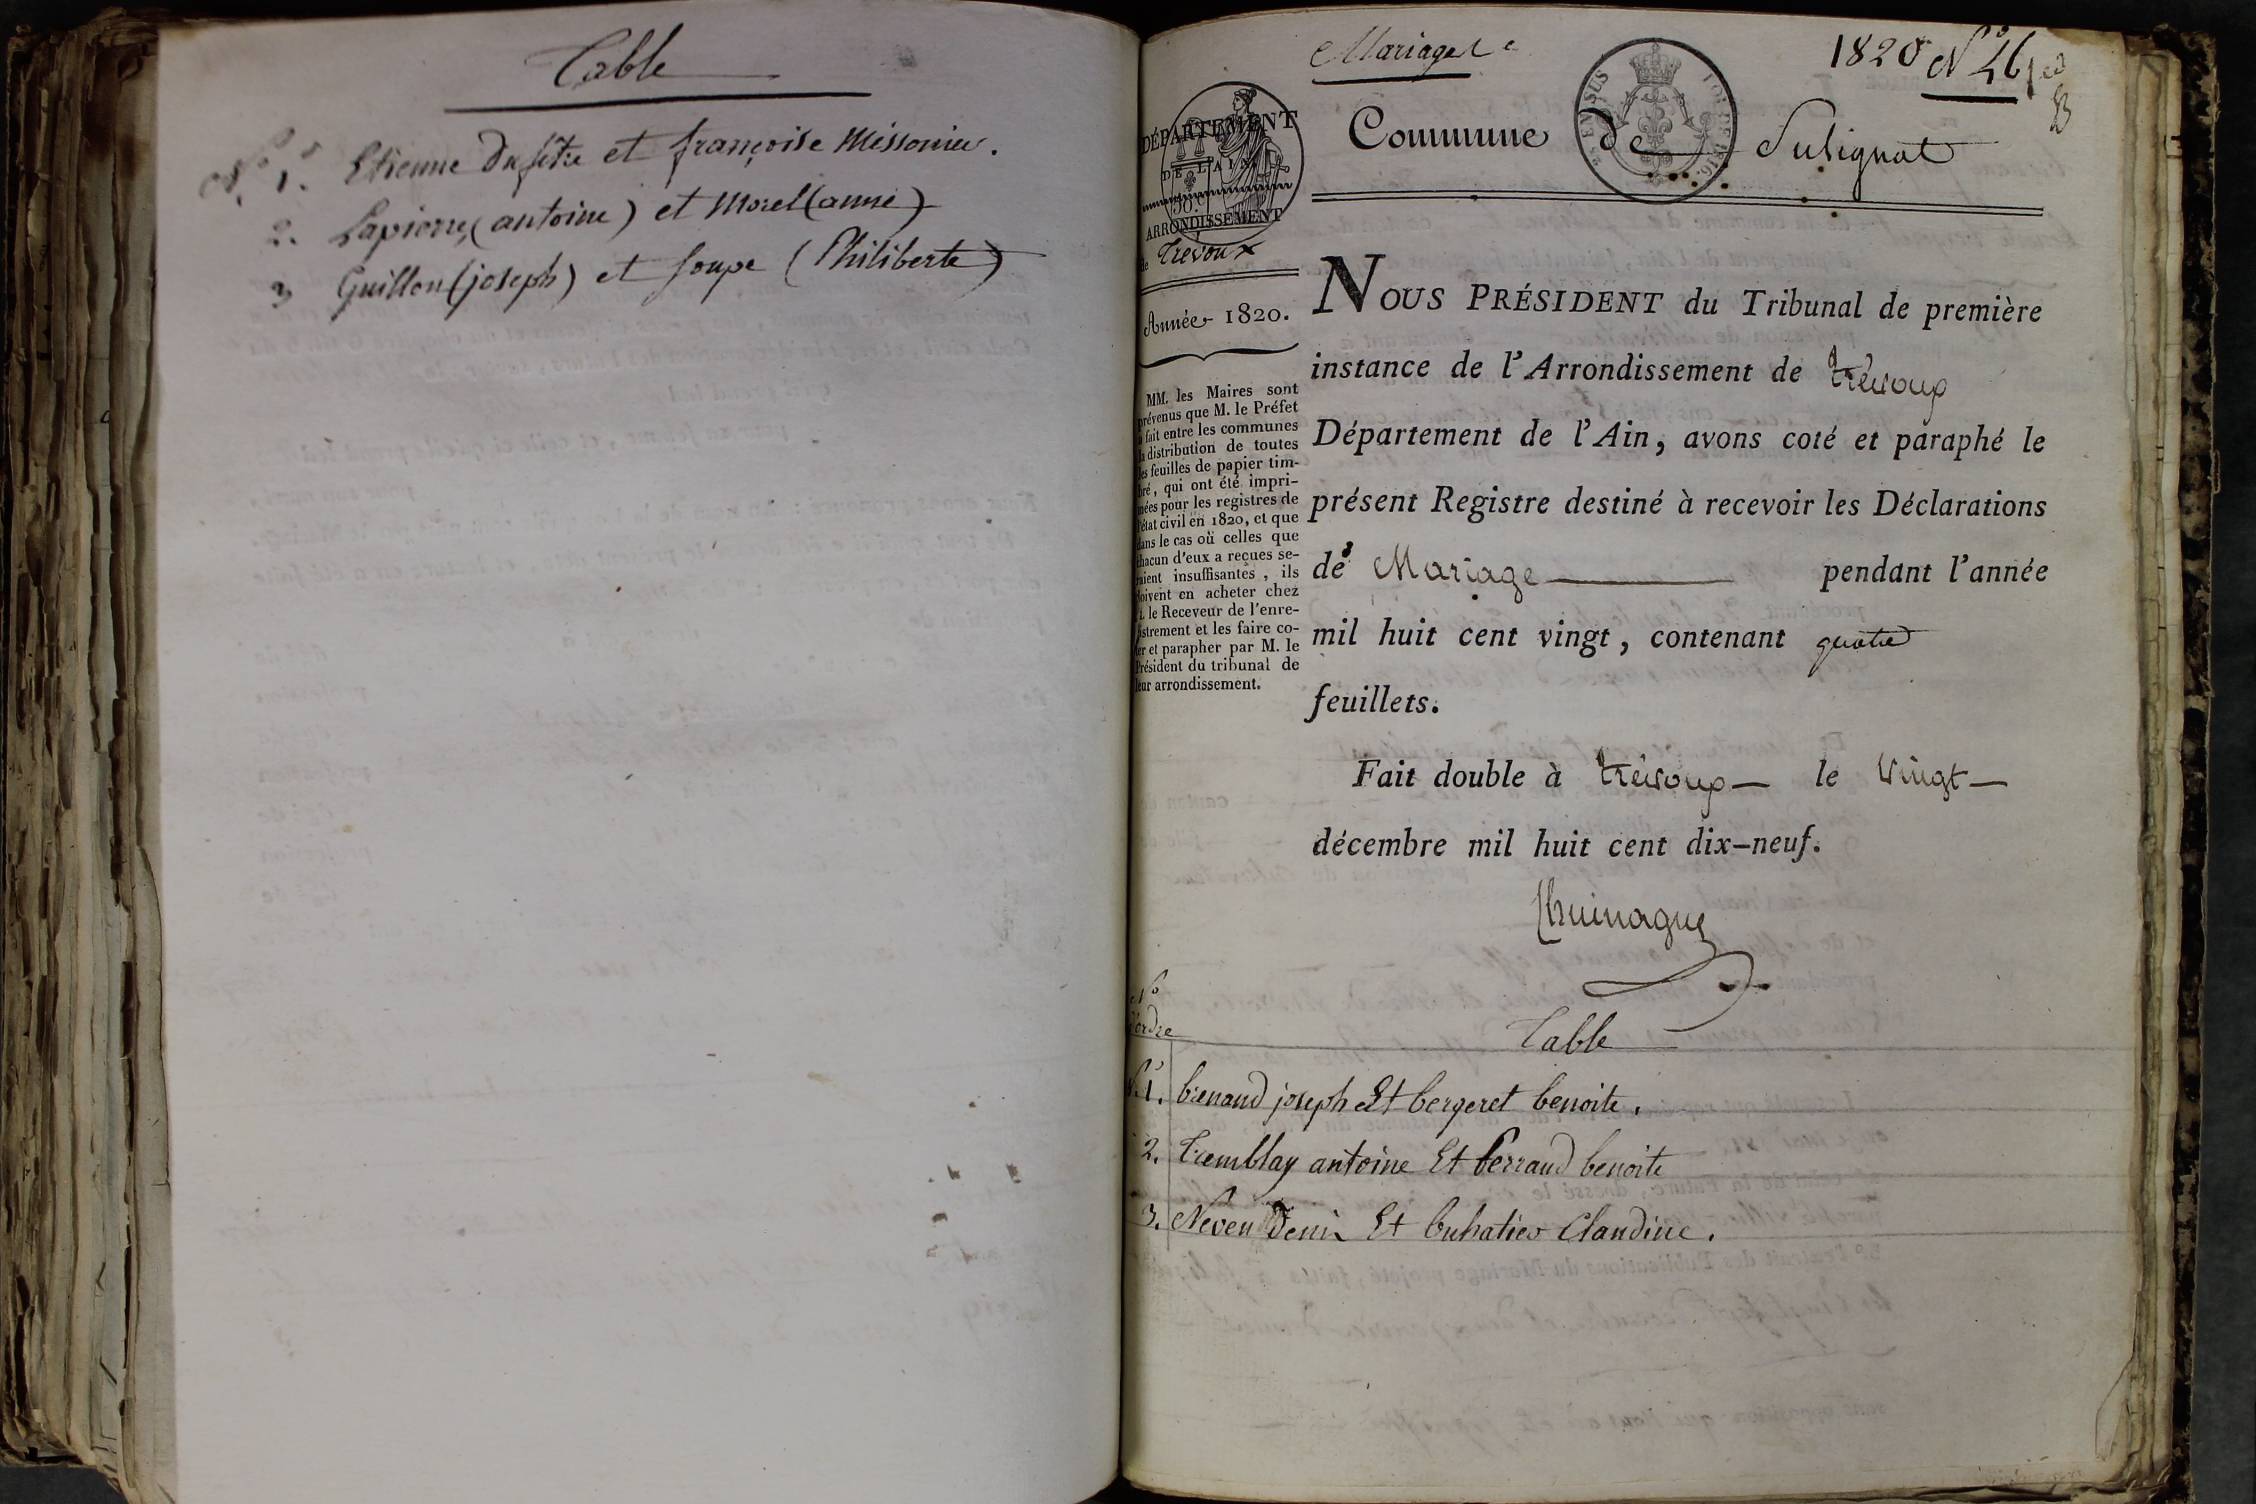 Table
N.° 1.° Etienne Dufêtre et françoise Missonier.
2. Lapierre (antoine) et Morel (anne)
3 Guillon (joseph) et Soupe (Philiberte)
Mariages
1820 N.° 46
DÉPARTEMENT
DE L'AIN
ARRONDISSEMENT
de Trévoux
Année 1820.
MM. les Maires sont
prévenus que M. le Préfet
a fait entre les communes
la distribution de toutes
les feuilles de papier tim-
bré, qui ont été impri-
mées pour les registres de
l'état civil en 1820, et que
dans le cas où celles que
chacun d'eux a reçues se-
raient insuffisantes, ils
doivent en acheter chez
M. le Receveur de l'enre-
gistrement et les faire co-
ter et parapher par M. le
Président du tribunal de
leur arrondissement.
Commune de Sulignat
NOUS PRÉSIDENT du Tribunal de première
instance de l'Arrondissement de trévoux
Département de l'Ain, avons coté et paraphé le
présent Registre destiné à recevoir les Déclarations
de Mariage pendant l'année
mil huit cent vingt, contenant quatre
feuillets.
Fait double à trévoux le vingt
décembre mil huit cent dix-neuf.
N.°
d'ordre
Table
N.° 1. brenaud joseph Et bergeret benoite.
2. Tremblay antoine Et perraud benoite
3. Neveu Denis Et buhatier Claudine.